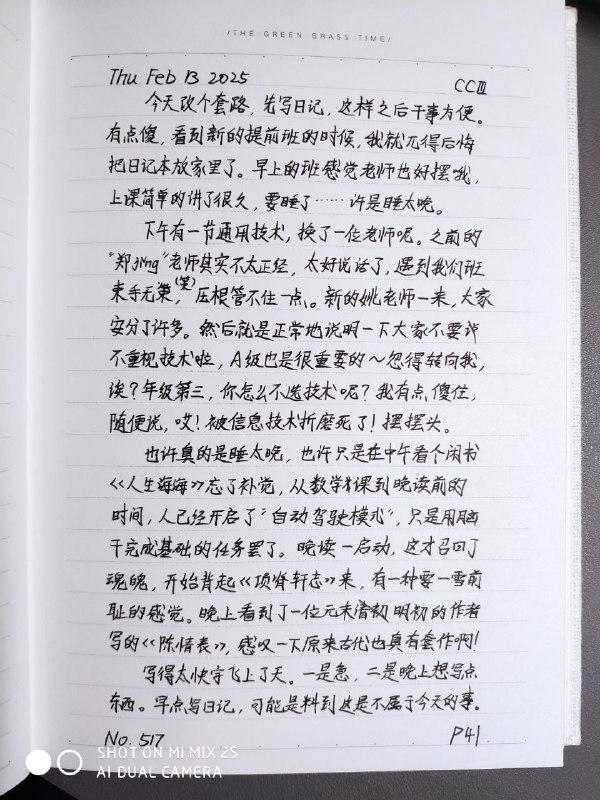 /THE GREEN GRASS TIME/
Thu Feb 13 2025 CCⅢ
今天改个套路，先写日记，这样之后干事方便。
有点傻，看到新的提前班的时候，我就兀得后悔
把日记本放家里了。早上的班感觉老师也好摆哦，
上课简单的讲了很久，要睡了……许是睡太晚。
下午有一节通用技术，换了一位老师呢。之前的
“郑jing”老师其实不太正经，太好说话了，遇到我们班
束手无策(笑)，压根管不住一点。新的姚老师一来，大家
安分了许多。然后就是正常地说明一下大家不要许
不重视技术啦，A级也是很重要的～忽得转向我，
诶？年级第三，你怎么不选技术呢？我有点傻住，
随便说，哎！被信息技术折磨死了！摆摆头。
也许真的是睡太晚，也许只是在中午看个闲书
《人生海海》忘了补觉，从数学课到晚读前的
时间，人已经开启了“自动驾驶模式”，只是用脑
干完成基础的任务罢了。晚读一启动，这才召回了
魂魄，开始背起《项脊轩志》来，有一种要一雪前
耻的感觉。晚上看到了一位元末明初的作者
写的《陈情表》，感叹一下原来古代也真有套作啊！
写得太快字飞上了天。一是急，二是晚上想写点
东西。早点写日记，可能是料到这是不属于今天的事。
No. 517 P41
SHOT ON MI MIX 2S
AI DUAL CAMERA